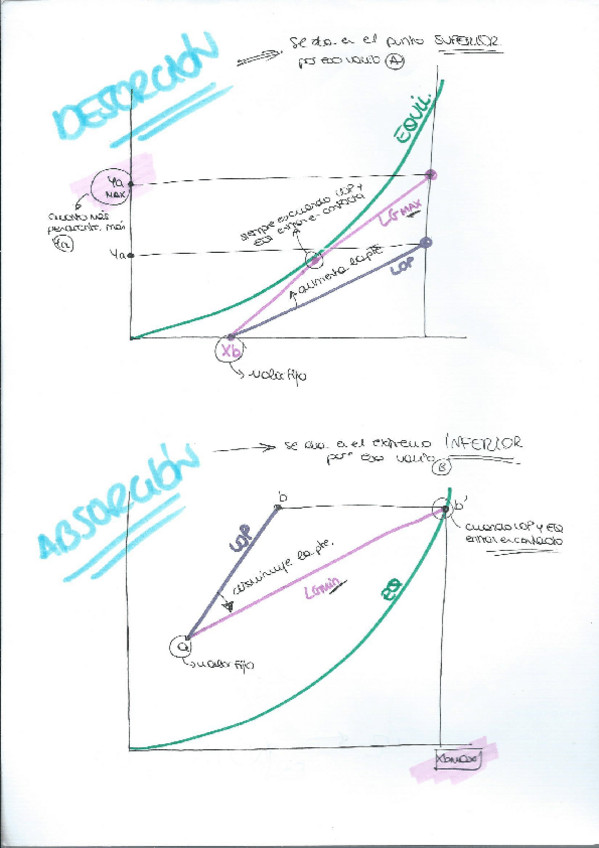 DESORCIÓN
Se da en el punto SUPERIOR
por eso varío A
EQUIL.
Ya
MAX
cuanto más
pendiente, más
Ya
siempre es cuando LOP y
EQ entran en contacto
LG MAX
Ya
aumenta la pte
LOP
Xb
valor fijo
ABSORCIÓN
Se da en el extremo INFERIOR
por eso varío
B
b
b'
LOP
cuando LOP y EQ
entran en contacto
disminuye la pte.
LGmin
EQ
a
valor fijo
Xbmax